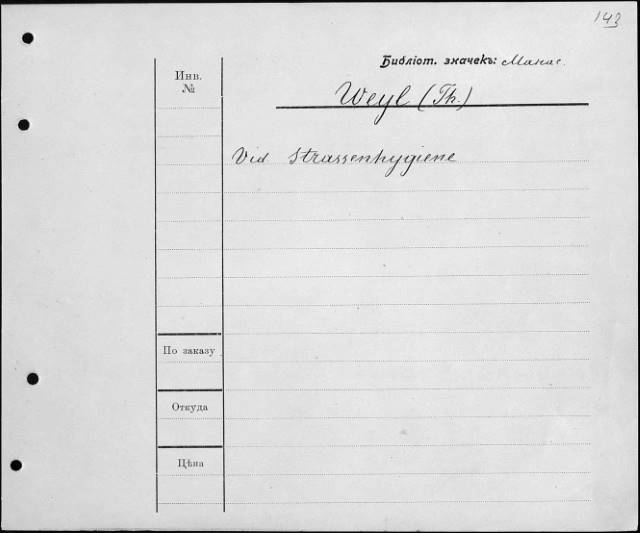 143
Библіот. значекъ: Манас.
Инв.
№
Weyl (Th.)
Vid Strassenhygiene
По заказу
Откуда
Цѣна